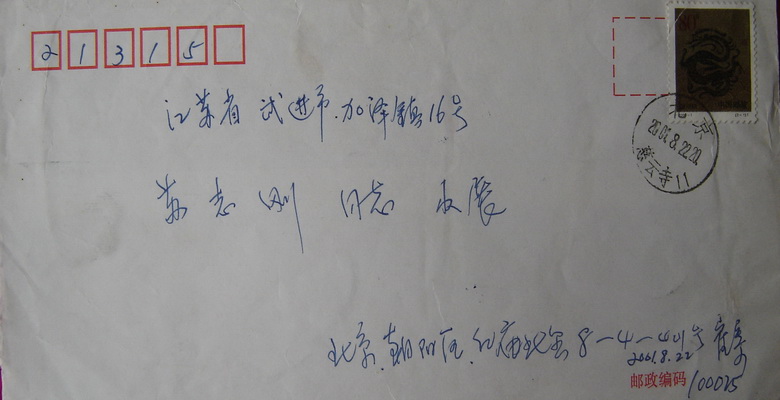 21315
北京
2001.8.22.20
慈云寺11
江苏省 武进市.加泽镇16号
苏志刚 同志 收展
北京.朝阳区.红庙北里8-4-401号
2001.8.22
邮政编码 100025